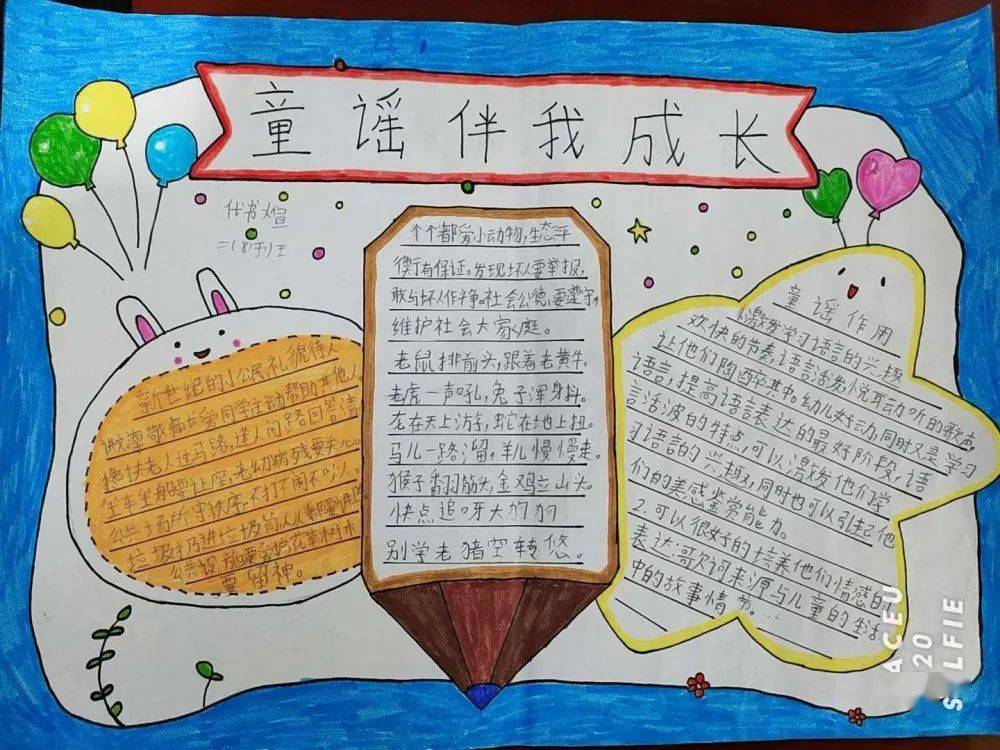 童谣伴我成长
二(8)王
新世纪的小公民礼貌待人
尊敬师长爱同学主动帮助其他人
搀扶老人过马路,逢人问路回答清
坐车坐船要让座,老幼病残要关心。
公共场所守秩序,不打不闹不可以
垃圾扔进垃圾筒人人
公共设施要爱护,花草树木
要留神。
个个都爱小动物,生态平
衡有保证。发现坏人要举报,
敢与坏人作斗争。社会公德要遵守,
维护社会大家庭。
老鼠排前头,跟着老黄牛。
老虎一声吼,兔子浑身抖。
龙在天上游,蛇在地上扭。
马儿一路溜,羊儿慢慢走。
猴子翻筋头,金鸡立山头。
快点追呀大狗狗
别学老猪空转悠。
童谣作用
1.激发学习语言的兴趣
欢快的节奏,语言活泼,悦耳动听的歌声,
让他们陶醉其中。幼儿好动,同时又是学习
语言,提高语言表达的最好阶段,语
言活波的特点,可以激发他们学
习语言的兴趣,同时也可以引起他
们的美感鉴赏能力。
2.可以很好的培养他们情感的
表达:歌词来源与儿童的生活
中的故事情节。
ACEU
20
S LFIE